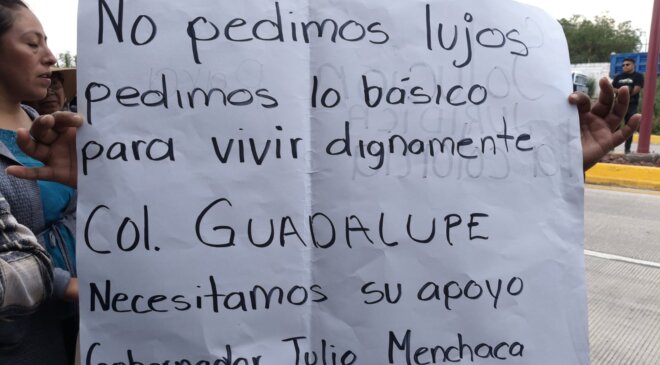 No pedimos lujos
pedimos lo básico
para vivir dignamente
Col. GUADALUPE
Necesitamos su apoyo
Gobernador Julio Menchaca